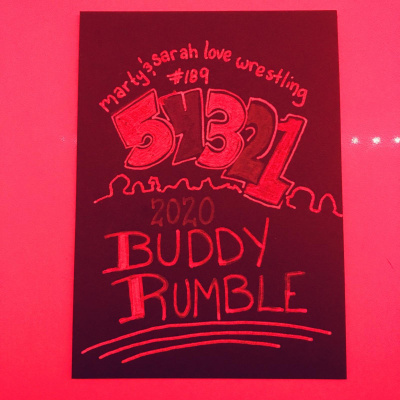 marty & sarah love wrestling
#189
54321
2020
BUDDY
RUMBLE